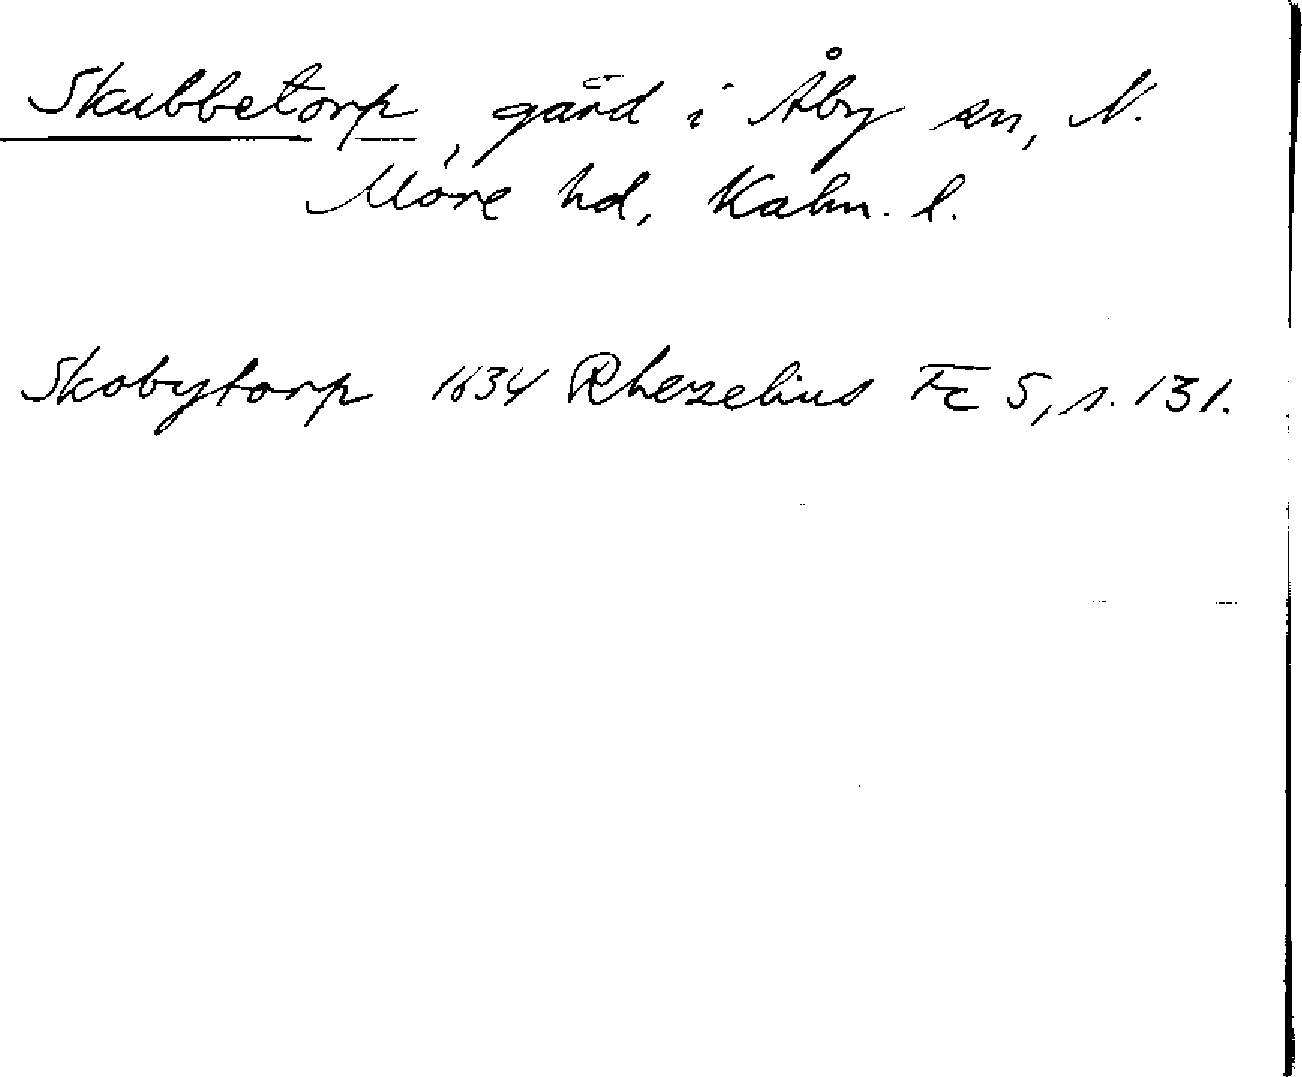 Skubbetorp, gård i Åby sn, N.
Möre hd, Kalm. l.
Skobytorp 1634 Rhezelius Fc 5, s. 131.